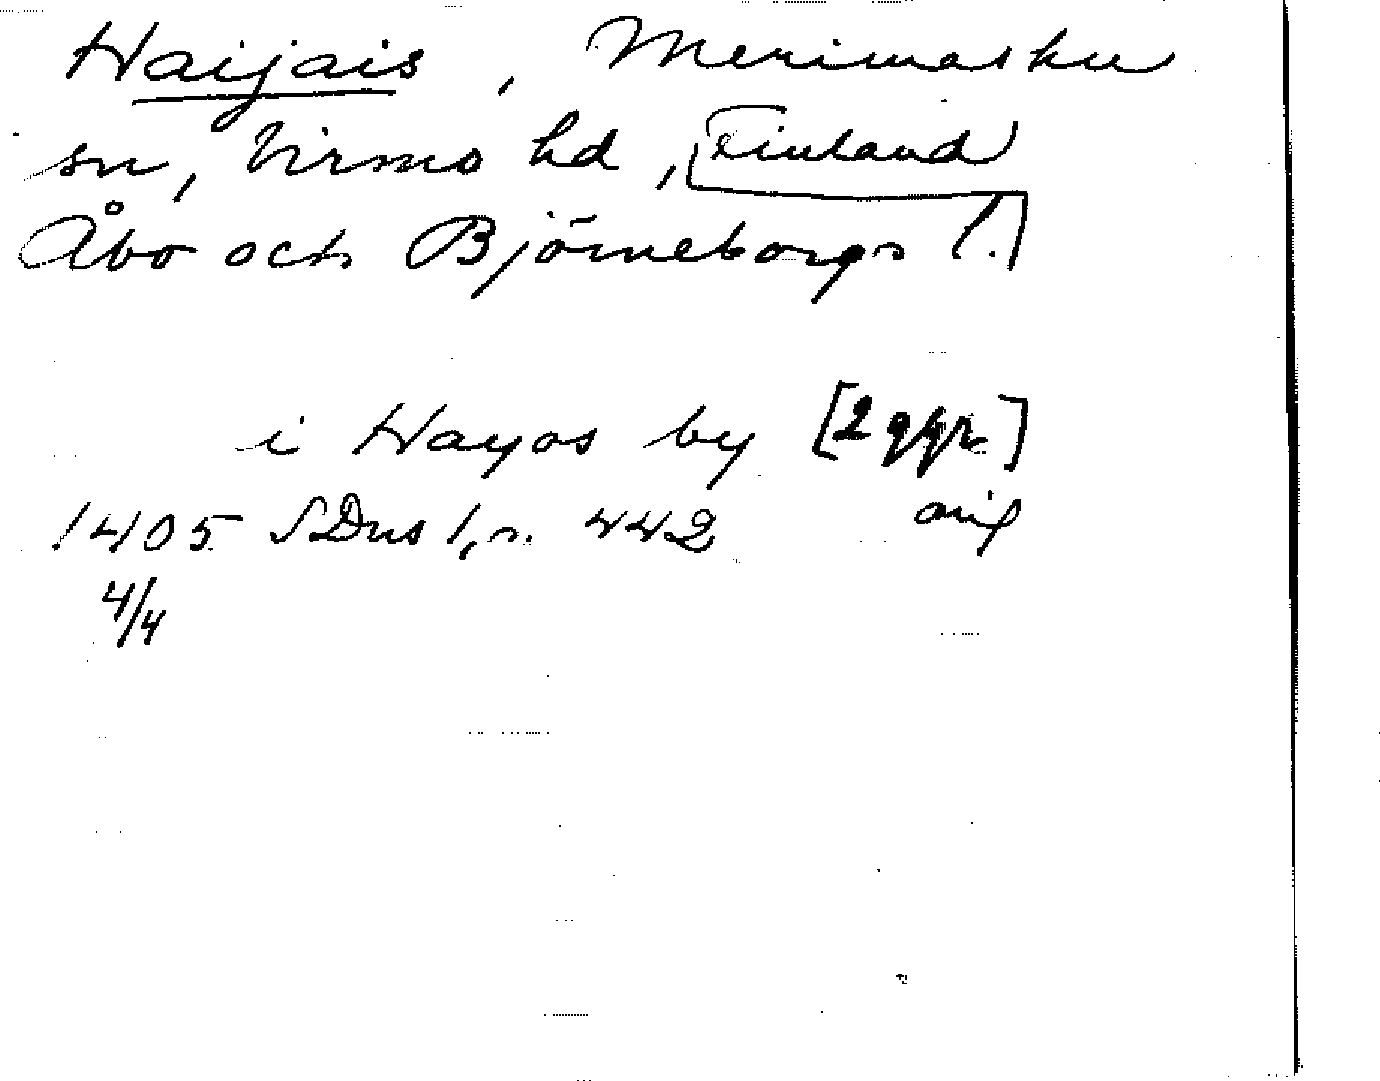 Haijais, Merimasku
sn, Virmo hd, Finland
Åbo och Björneborgs l.
i Hayos by [2 ggr]
1405 SDns 1, s. 442 orig
4/4